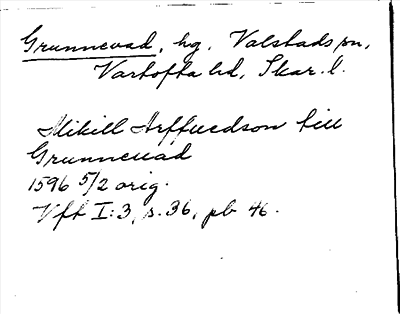 Grunnevad, hg. Valstads sn,
Vartofta hd, Skar. l.
Mikill Arffuedson till
Grunneuad
1596 5/2 orig.
Vft I:3, s. 36, pb 46.